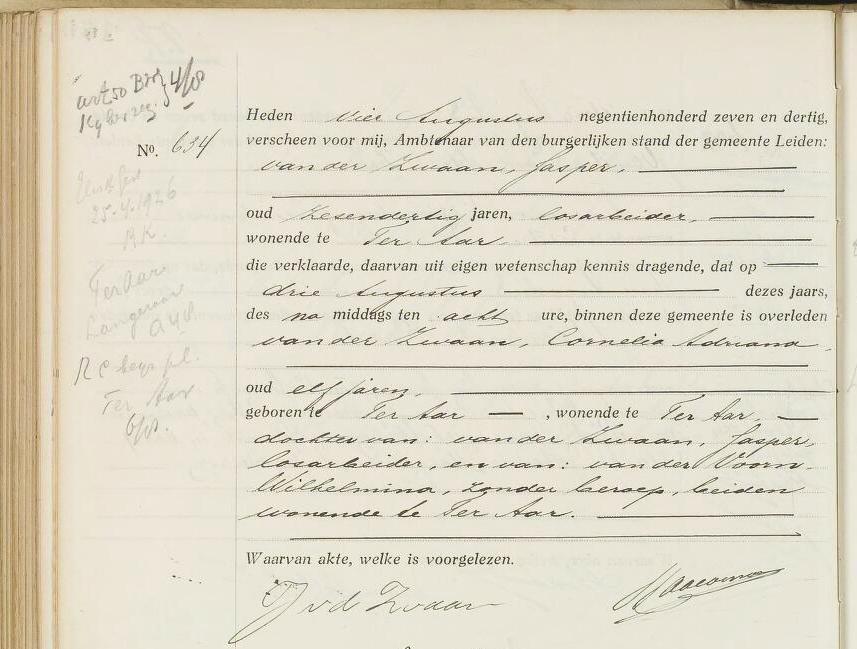 art 50 BW 4/8
No. 634
25-4-1926
R.K.
Ter Aar
Langeraar
A 48
R C begr pl.
Ter Aar
6/8.
Heden vier Augustus negentienhonderd zeven en dertig,
verscheen voor mij, Ambtenaar van den burgerlijken stand der gemeente Leiden:
van der Zwaan, Jasper,
oud zesendertig jaren, losarbeider,
wonende te Ter Aar
die verklaarde, daarvan uit eigen wetenschap kennis dragende, dat op
drie Augustus dezes jaars,
des na middags ten acht ure, binnen deze gemeente is overleden
van der Zwaan, Cornelia Adriana,
oud elf jaren,
geboren te Ter Aar , wonende te Ter Aar,
dochter van: van der Zwaan, Jasper,
losarbeider, en van: van der Voorn,
Wilhelmina, zonder beroep, beiden
wonende te Ter Aar.
Waarvan akte, welke is voorgelezen.
J vd Zwaan